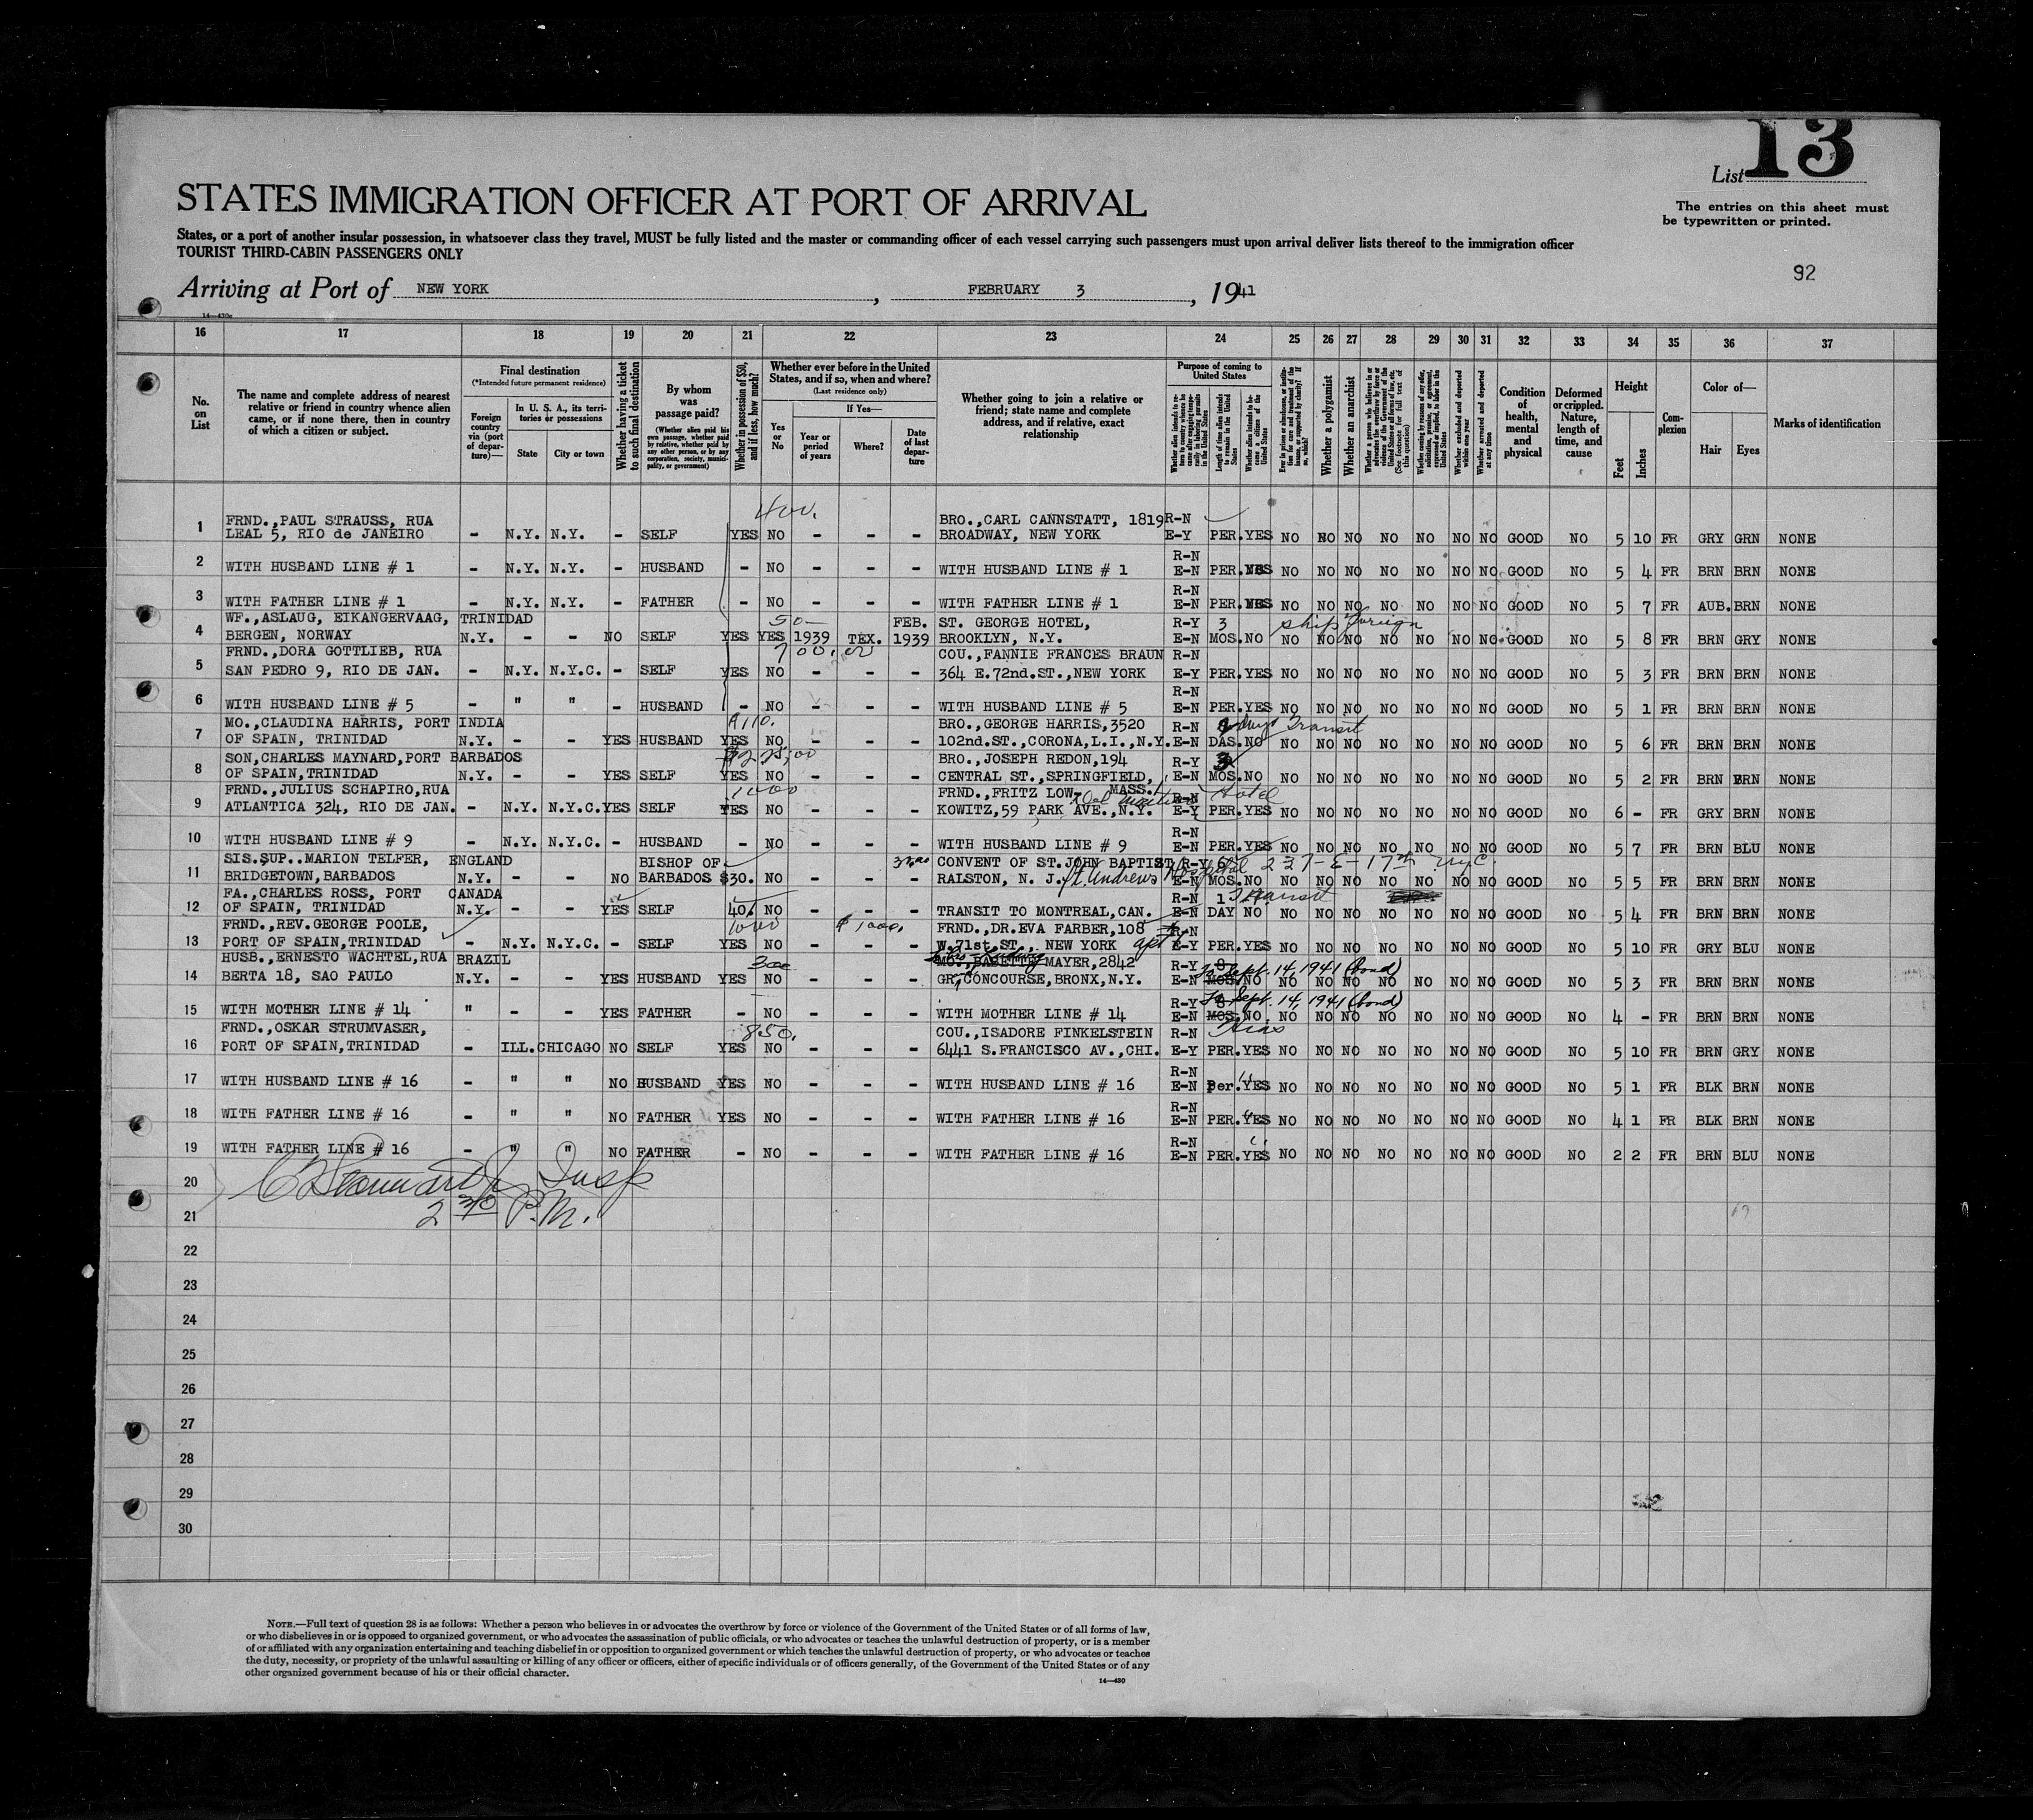 List 13
STATES IMMIGRATION OFFICER AT PORT OF ARRIVAL
The entries on this sheet must
be typewritten or printed.
States, or a port of another insular possession, in whatsoever class they travel, MUST be fully listed and the master or commanding officer of each vessel carrying such passengers must upon arrival deliver lists thereof to the immigration officer
TOURIST THIRD-CABIN PASSENGERS ONLY
92
Arriving at Port of NEW YORK, FEBRUARY 3, 1941
14—430c
16 17 18 19 20 21 22 23 24 25 26 27 28 29 30 31 32 33 34 35 36 37
No. on List
The name and complete address of nearest
relative or friend in country whence alien
came, or if none there, then in country
of which a citizen or subject.
Final destination
(*Intended future permanent residence)
Foreign country via (port of departure)—
In U. S. A., its territories or possessions
State
City or town
Whether having a ticket to such final destination
By whom was passage paid?
(Whether alien paid his own passage, whether paid by relative, whether paid by any other person, or by any corporation, society, municipality, or government)
Whether in possession of $50, and if less, how much?
Whether ever before in the United States, and if so, when and where?
(Last residence only)
Yes or No
If Yes—
Year or period of years
Where?
Date of last departure
Whether going to join a relative or
friend; state name and complete
address, and if relative, exact
relationship
Purpose of coming to United States
Length of time alien intends to remain in the United States
Whether a polygamist
Whether an anarchist
Whether excluded and deported within one year
Whether arrested and deported at any time
Condition of health, mental and physical
Deformed or crippled. Nature, length of time, and cause
Height
Feet
Inches
Complexion
Color of—
Hair
Eyes
Marks of identification
400.
1 FRND.,PAUL STRAUSS, RUA BRO.,CARL CANNSTATT, 1819 R-N
LEAL 5, RIO de JANEIRO - N.Y. N.Y. - SELF YES NO - - - BROADWAY, NEW YORK E-Y PER.YES NO NO NO NO NO NO NO GOOD NO 5 10 FR GRY GRN NONE
R-N
2 WITH HUSBAND LINE # 1 - N.Y. N.Y. - HUSBAND - NO - - - WITH HUSBAND LINE # 1 E-N PER.YES NO NO NO NO NO NO NO GOOD NO 5 4 FR BRN BRN NONE
R-N
3 WITH FATHER LINE # 1 - N.Y. N.Y. - FATHER - NO - - - WITH FATHER LINE # 1 E-N PER.YES NO NO NO NO NO NO NO GOOD NO 5 7 FR AUB. BRN NONE
4 WF.,ASLAUG, EIKANGERVAAG, TRINIDAD 50— FEB. ST. GEORGE HOTEL, R-Y 3 ship foreign
BERGEN, NORWAY N.Y. - - NO SELF YES YES 1939 TEX. 1939 BROOKLYN, N.Y. E-N MOS.NO NO NO NO NO NO NO NO GOOD NO 5 8 FR BRN GRY NONE
5 FRND.,DORA GOTTLIEB, RUA 700.00 COU.,FANNIE FRANCES BRAUN R-N
SAN PEDRO 9, RIO DE JAN. - N.Y. N.Y.C. - SELF YES NO - - - 364 E.72nd.ST.,NEW YORK E-Y PER.YES NO NO NO NO NO NO NO GOOD NO 5 3 FR BRN BRN NONE
R-N
6 WITH HUSBAND LINE # 5 - " " - HUSBAND - NO - - - WITH HUSBAND LINE # 5 E-N PER.YES NO NO NO NO NO NO NO GOOD NO 5 1 FR BRN BRN NONE
7 MO.,CLAUDINA HARRIS, PORT INDIA BRO.,GEORGE HARRIS,3520 R-N days Transit
OF SPAIN, TRINIDAD N.Y. - - YES HUSBAND YES NO - - - 102nd.ST.,CORONA,L.I.,N.Y. E-N DAS.NO NO NO NO NO NO NO NO GOOD NO 5 6 FR BRN BRN NONE
8 SON,CHARLES MAYNARD,PORT BARBADOS BRO.,JOSEPH REDON,194 R-Y 3
OF SPAIN,TRINIDAD N.Y. - - YES SELF YES NO - - - CENTRAL ST.,SPRINGFIELD, E-N MOS.NO NO NO NO NO NO NO NO GOOD NO 5 2 FR BRN BRN NONE
9 FRND.,JULIUS SCHAPIRO,RUA 1000 FRND.,FRITZ LOW- MASS. R-N Hotel
ATLANTICA 324, RIO DE JAN. - N.Y. N.Y.C. YES SELF YES NO - - - KOWITZ,59 PARK AVE.,N.Y. E-Y PER.YES NO NO NO NO NO NO NO GOOD NO 6 - FR GRY BRN NONE
R-N
10 WITH HUSBAND LINE # 9 - N.Y. N.Y.C. - HUSBAND - NO - - - WITH HUSBAND LINE # 9 E-N PER.YES NO NO NO NO NO NO NO GOOD NO 5 7 FR BRN BLU NONE
11 SIS.SUP..MARION TELFER, ENGLAND BISHOP OF CONVENT OF ST.JOHN BAPTIST R-Y 6 237-E-17th NYC.
BRIDGETOWN,BARBADOS N.Y. - - NO BARBADOS $30. NO - - - RALSTON, N. J. St. Andrews Hospital E-N MOS.NO NO NO NO NO NO NO NO GOOD NO 5 5 FR BRN BRN NONE
12 FA.,CHARLES ROSS, PORT CANADA R-N 1 Transit
OF SPAIN, TRINIDAD N.Y. - - YES SELF 40. NO - - - TRANSIT TO MONTREAL,CAN. E-N DAY NO NO NO NO NO NO NO NO GOOD NO 5 4 FR BRN BRN NONE
13 FRND.,REV.GEORGE POOLE, 1000 $1,000. FRND.,DR.EVA FARBER,108 R-N
PORT OF SPAIN,TRINIDAD - N.Y. N.Y.C. - SELF YES NO - - - W.71st.ST., NEW YORK apt E-Y PER.YES NO NO NO NO NO NO NO GOOD NO 5 10 FR GRY BLU NONE
14 HUSB.,ERNESTO WACHTEL,RUA BRAZIL 300 MO.,BABETTE MAYER,2842 R-Y 8 to Sept. 14, 1941 (bond)
BERTA 18, SAO PAULO N.Y. - - YES HUSBAND YES NO - - - GR.CONCOURSE,BRONX,N.Y. E-N MOS.NO NO NO NO NO NO NO NO GOOD NO 5 3 FR BRN BRN NONE
R-Y 8 to Sept. 14, 1941 (bond)
15 WITH MOTHER LINE # 14 " - - YES FATHER - NO - - - WITH MOTHER LINE # 14 E-N MOS.NO NO NO NO NO NO NO NO GOOD NO 4 - FR BRN BRN NONE
16 FRND., OSKAR STRUMVASER, 850. COU.,ISADORE FINKELSTEIN R-N Hias
PORT OF SPAIN,TRINIDAD - ILL. CHICAGO NO SELF YES NO - - - 6441 S.FRANCISCO AV.,CHI. E-Y PER.YES NO NO NO NO NO NO NO GOOD NO 5 10 FR BRN GRY NONE
R-N "
17 WITH HUSBAND LINE # 16 - " " NO HUSBAND YES NO - - - WITH HUSBAND LINE # 16 E-N Per.YES NO NO NO NO NO NO NO GOOD NO 5 1 FR BLK BRN NONE
R-N "
18 WITH FATHER LINE # 16 - " " NO FATHER YES NO - - - WITH FATHER LINE # 16 E-N PER.YES NO NO NO NO NO NO NO GOOD NO 4 1 FR BLK BRN NONE
R-N "
19 WITH FATHER LINE # 16 - " " NO FATHER - NO - - - WITH FATHER LINE # 16 E-N PER.YES NO NO NO NO NO NO NO GOOD NO 2 2 FR BRN BLU NONE
20 Insp
21 2 30 P.M.
22
23
24
25
26
27
28
29
30
NOTE.—Full text of question 28 is as follows: Whether a person who believes in or advocates the overthrow by force or violence of the Government of the United States or of all forms of law,
or who disbelieves in or is opposed to organized government, or who advocates the assassination of public officials, or who advocates or teaches the unlawful destruction of property, or is a member
of or affiliated with any organization entertaining and teaching disbelief in or opposition to organized government or which teaches the unlawful destruction of property, or who advocates or teaches
the duty, necessity, or propriety of the unlawful assaulting or killing of any officer or officers, either of specific individuals or of officers generally, of the Government of the United States or of any
other organized government because of his or their official character.
14—430